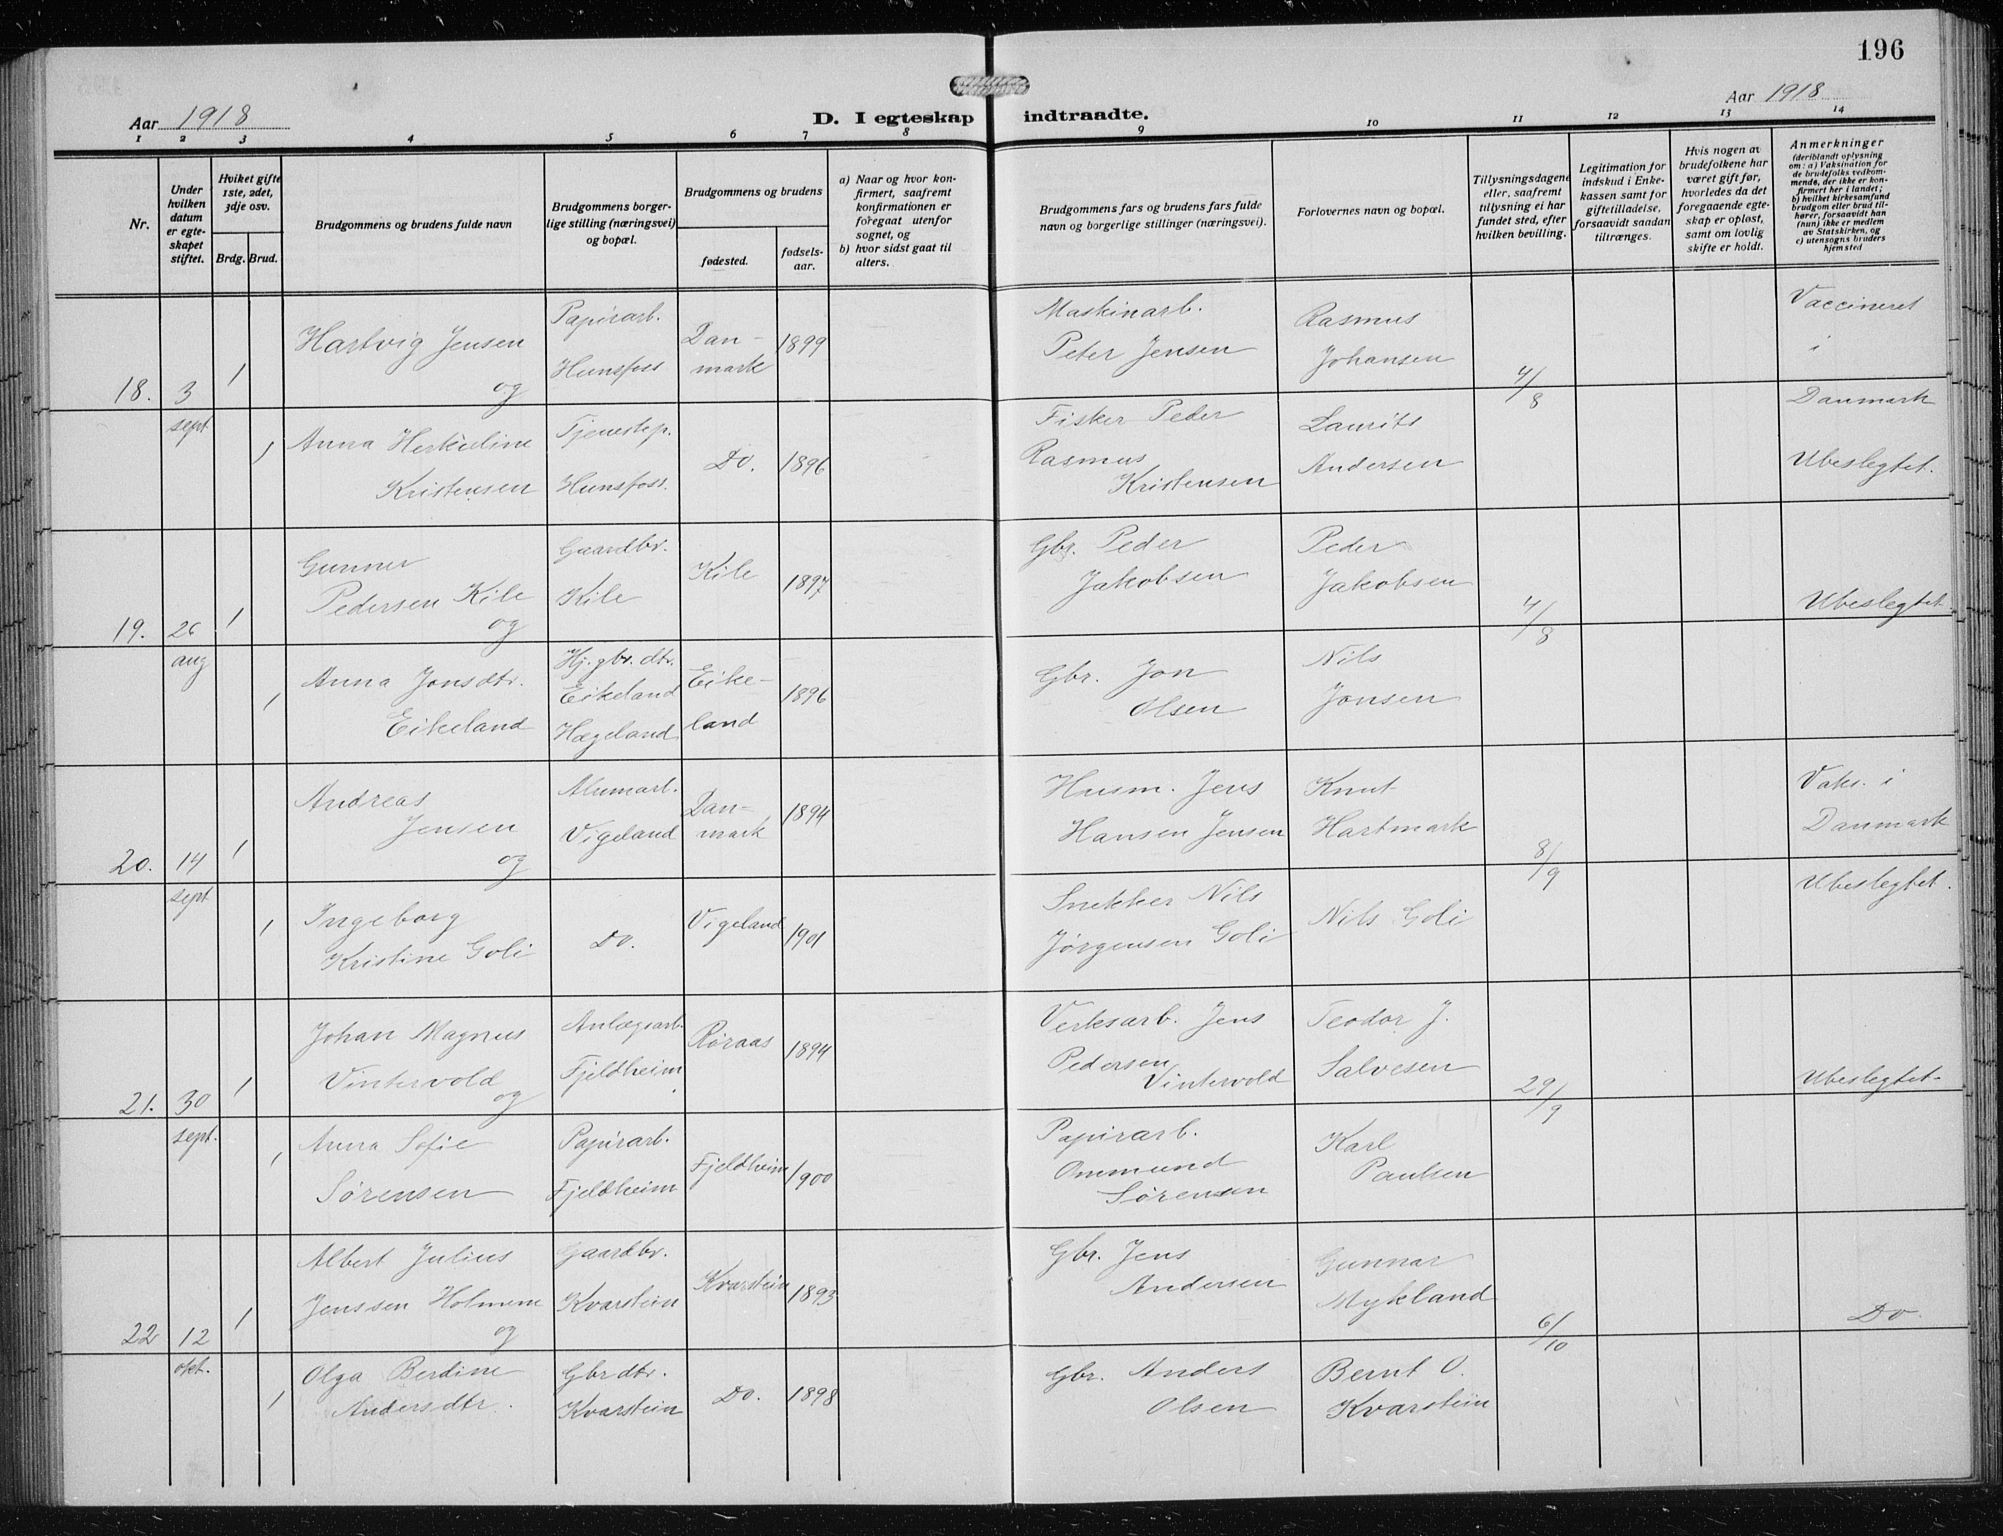 196
Aar 1918
D. I egteskap indtraadte.
Aar 1918
1 2 3 4 5 6 7 8 9 10 11 12 13 14
Nr.
Under hvilken datum er egteskapet stiftet.
Hviket gifte 1ste, 2det, 3dje osv.
Brdg. Brud.
Brudgommens og brudens fulde navn
Brudgommens borgerlige stilling (næringsvei) og bopæl.
Brudgommens og brudens
fødested.
fødselsaar.
a) Naar og hvor konfirmert, saafremt konfirmationen er foregaat utenfor sognet, og
b) hvor sidst gaat til alters.
Brudgommens fars og brudens fars fulde navn og borgerlige stillinger (næringsvei).
Forlovernes navn og bopæl.
Tillysningsdagene eller, saafremt tillysning ei har fundet sted, efter hvilken bevilling.
Legitimation for indskud i Enkekassen samt for giftetilladelse, forsaavidt saadan tiltrænges.
Hvis nogen av brudefolkene har været gift før, hvorledes da det foregaaende egteskap er opløst, samt om lovlig skifte er holdt.
Anmerkninger
(deriblandt oplysning om: a) Vaksination for de brudefolks vedkommende, der ikke er konfirmert her i landet; b) hvilket kirkesamfund brudgom eller brud tilhører, forsaavidt han (hun) ikke er medlem av Statskirken, og c) utensogns bruders hjemsted
18. 3 sept 1 Hartvig Jensen og Papirarb. Hunsfoss Danmark 1899 Maskinarb. Peter Jensen Rasmus Johansen 4/8 Vaccineret i Danmark
1 Anna Kristensen Tjenestep. Hunsfoss. Do. 1896 Fisker Peder Rasmus Kristensen Laurits Andersen Ubeslegtet.
19. 26 aug 1 Gunner Pedersen Kile og Gaardbr. Kile Kile 1897 Gbr. Peder Jakobsen Peder Jakobsen 4/8 Ubeslegtet
1 Anna Jonsdtr. Eikeland Hj. gbr. dtr. Eikeland Hægeland Eikeland 1896 Gbr. Jon Olsen Nils Jonsen
20. 14 sept 1 Andreas Jensen og Alumarb. Vigeland Danmark 1894 Husm. Jens Hansen Jensen Knut Hartmark 8/9 Vaks. i Danmark
1 Ingeborg Kristine Goli Do. Vigeland 1901 Snekker Nils Jørgensen Goli Nils Goli Ubeslegtet.
21. 30 sept. 1 Johan Magnus Vintervold og Anlægsarb. Fjeldheim Røraas 1894 Verksarb. Jens Pedersen Vintervold Teodor J. Salvesen 29/9 Ubeslegtet
1 Anna Sofie Sørensen Papirarb. Fjeldheim Fjeldheim 1900 Papirarb. Ommund Sørensen Karl Paulsen
22 12 okt. 1 Albert Julius Jenssen Holmene og Gaardbr. Kvarstein Kvarstein 1893 Gbr. Jens Andersen Gunnar Mykland 6/10 Do.
1 Olga Berdine Andersdtr. Gbr dtr. Kvarstein Do. 1898 Gbr. Anders Olsen Bernt O. Kvarstein